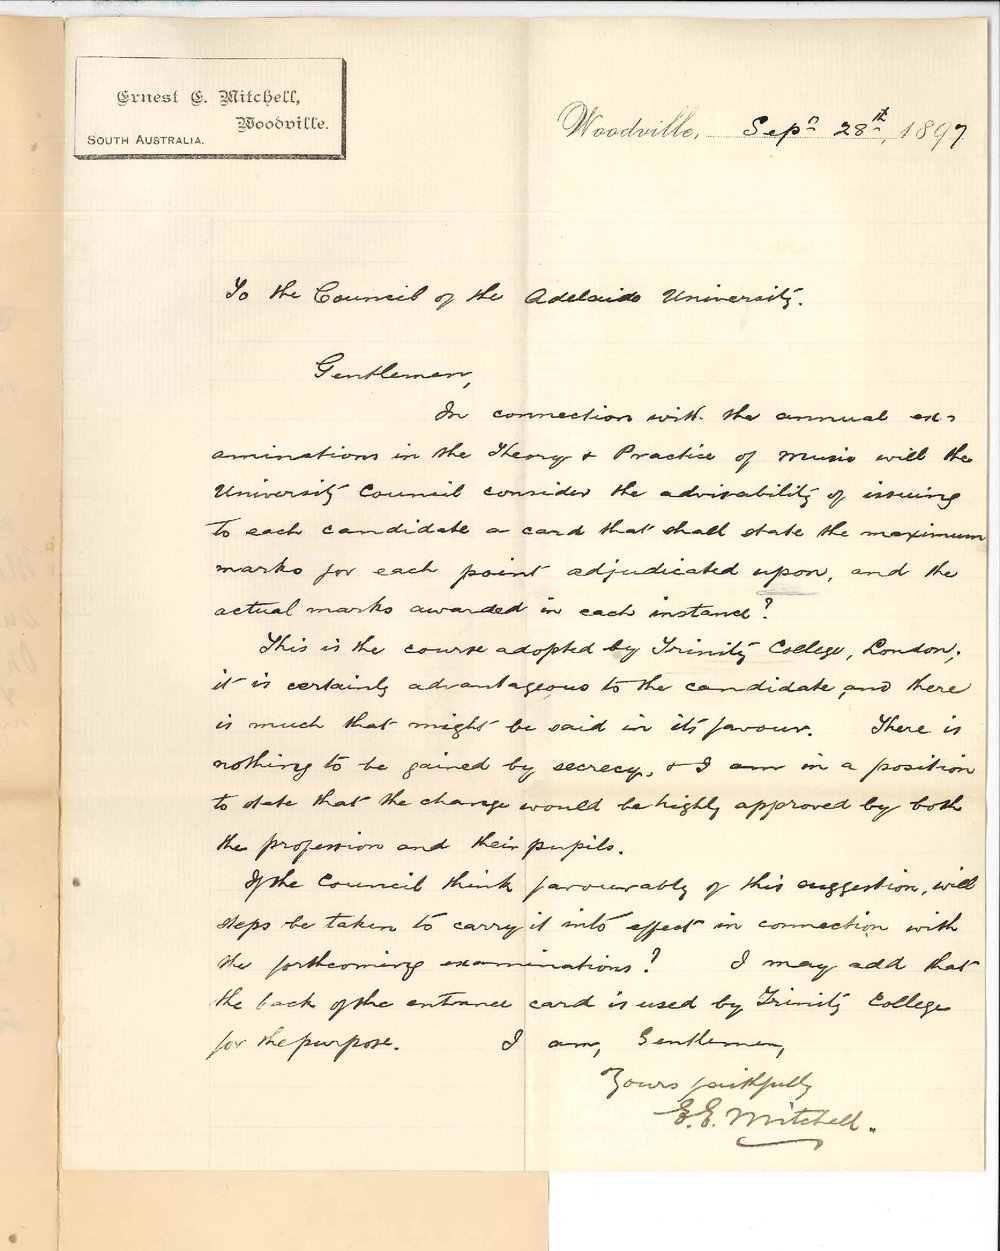 Ernest E. Mitchell,
Woodville.
SOUTH AUSTRALIA.
Woodville, Sepr 28th, 1897
To the Council of the Adelaide University.
Gentlemen,
In connection with the annual ex-
aminations in the Theory & Practice of Music will the
University Council consider the advisability of issuing
to each candidate a card that shall state the maximum
marks for each point adjudicated upon, and the
actual marks awarded in each instance?
This is the course adopted by Trinity College, London;
it is certainly advantageous to the candidate, and there
is much that might be said in its favour. There is
nothing to be gained by secrecy, & I am in a position
to state that the change would be highly approved by both
the profession and their pupils.
If the Council think favourably of this suggestion, will
steps be taken to carry it into effect in connection with
the forthcoming examinations? I may add that
the back of the entrance card is used by Trinity College
for the purpose. I am, Gentlemen,
Yours faithfully
E. E. Mitchell.